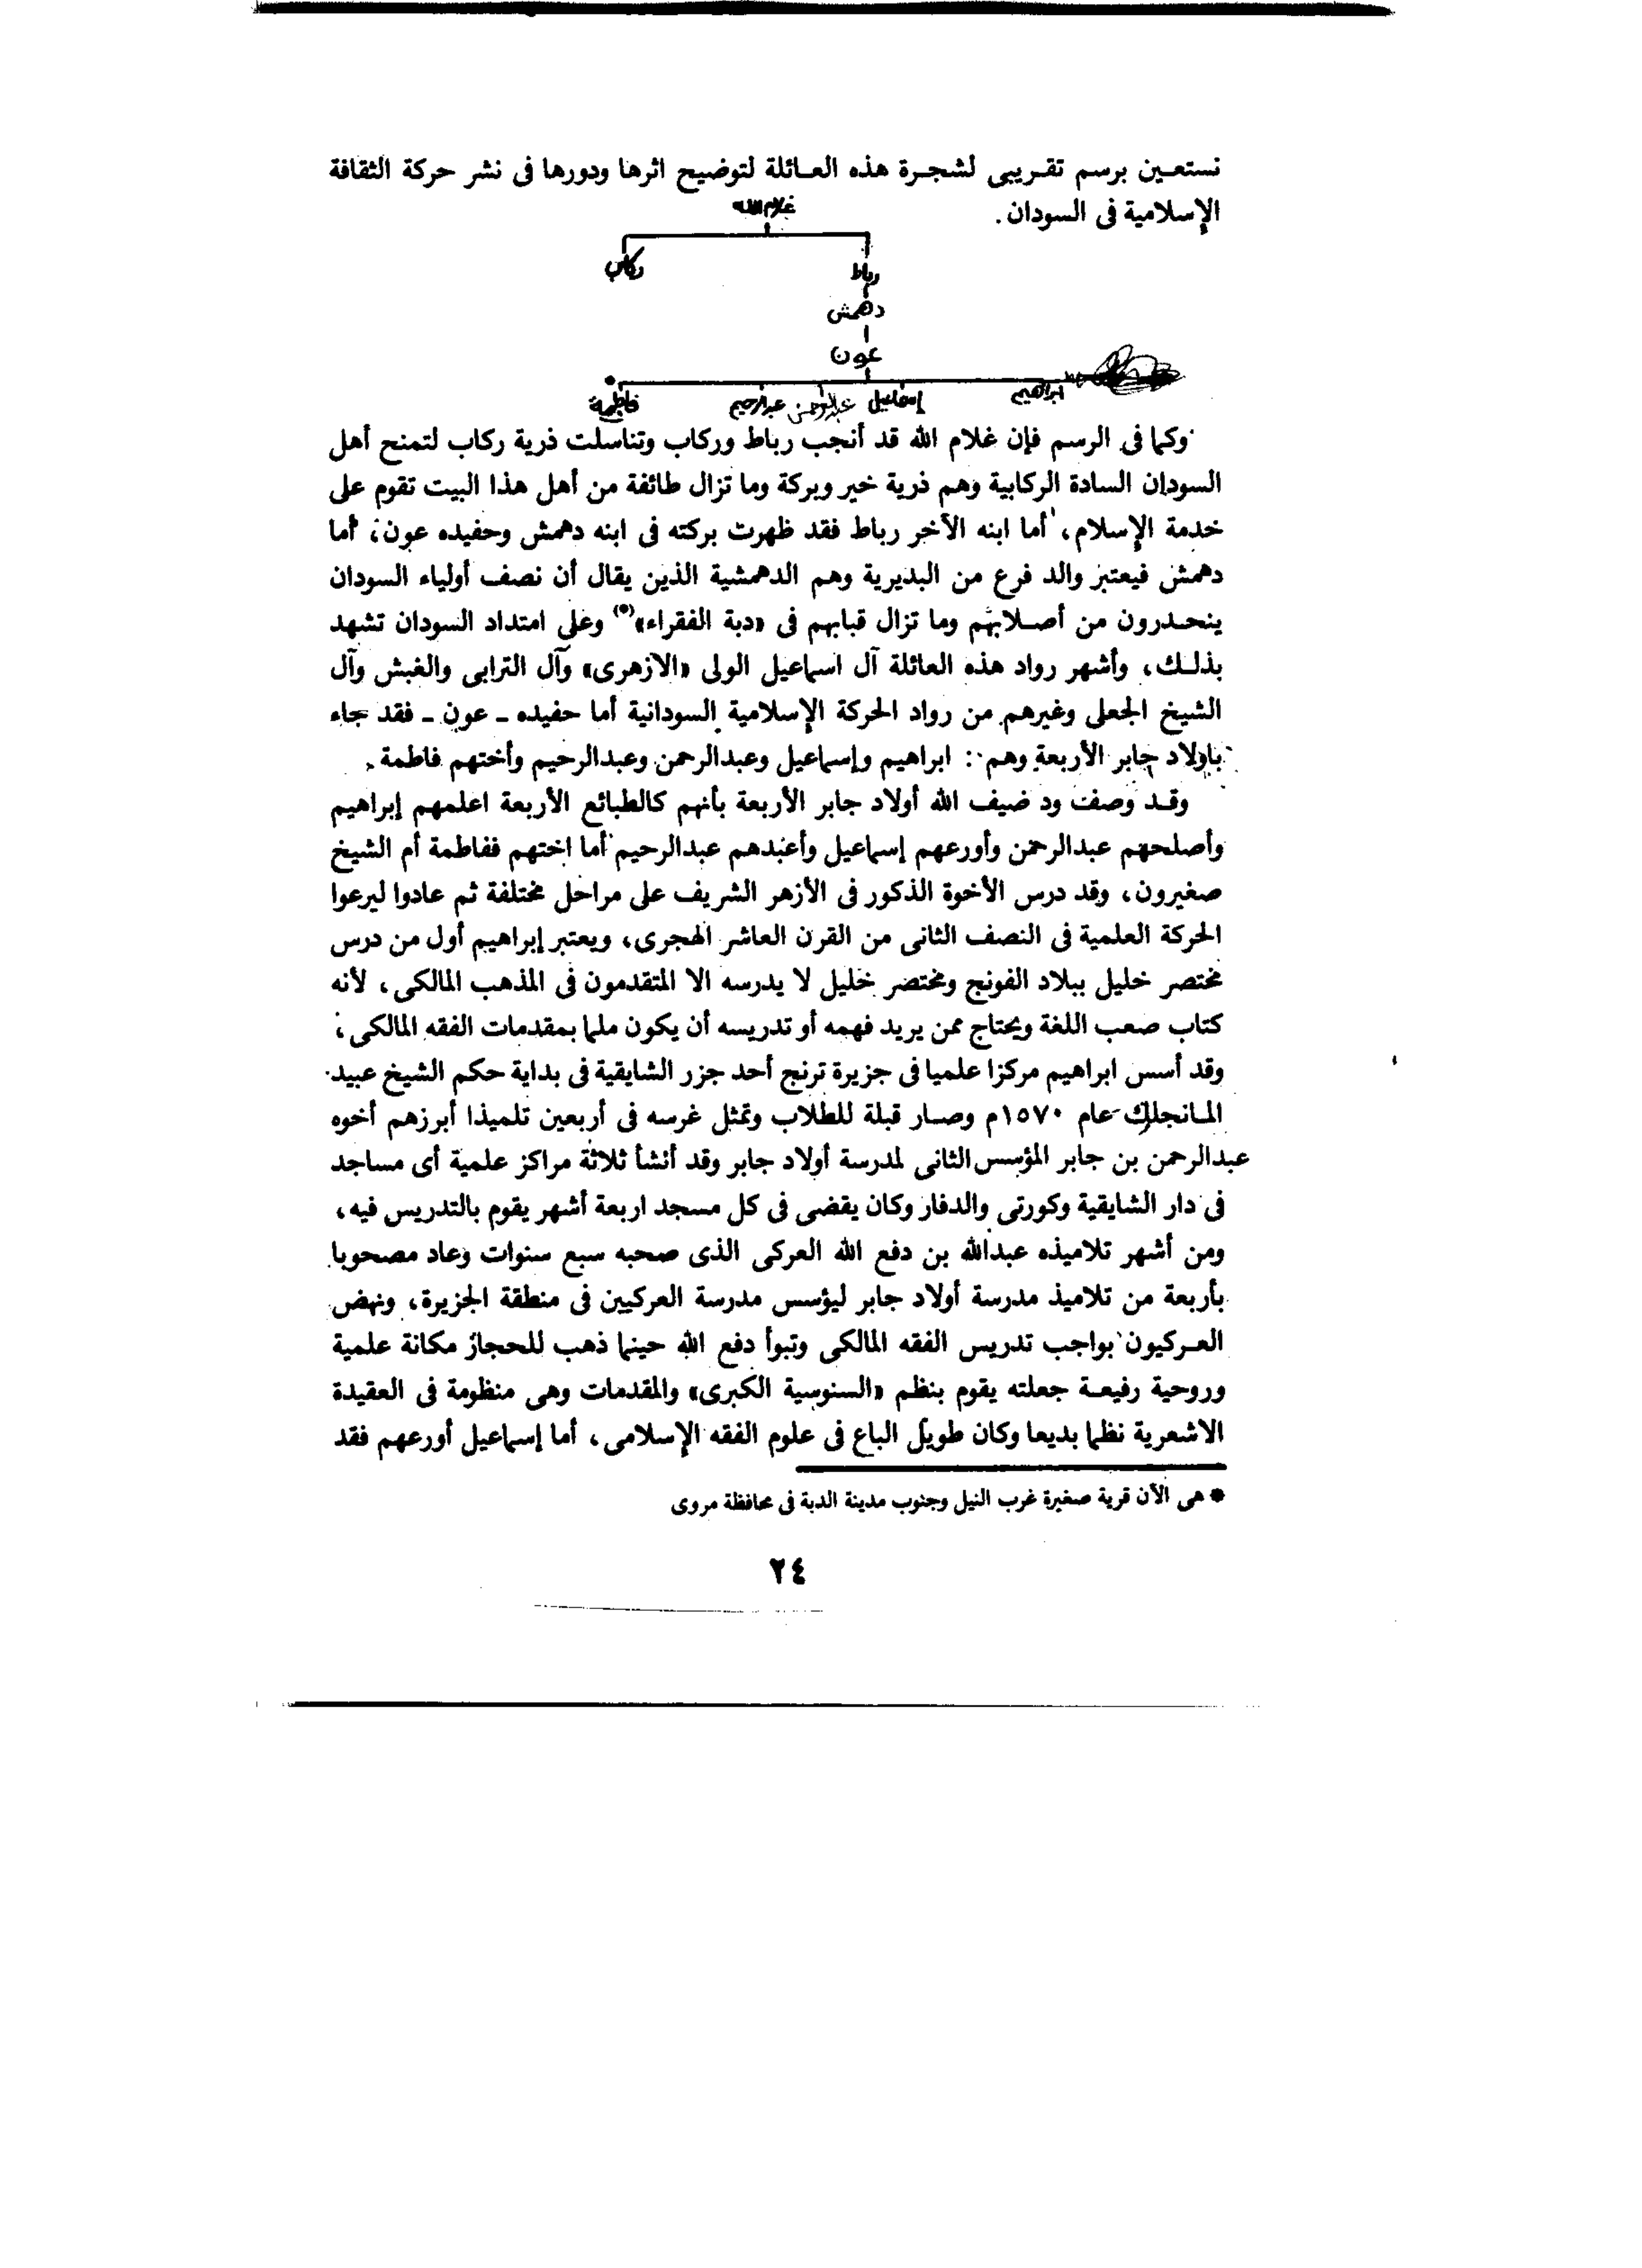 نستعـين برسم تقـريبى لشجـرة هذه العـائلة لتوضيح اثرها ودورها فى نشر حركة الثقافة
الإسلامية فى السودان .
غلام الله
رباط
ركاب
دهمش
عون
ابراهيم
إسماعيل
عبدالرحمن
عبدالرحيم
فاطمة
وكما فى الرسم فإن غلام الله قد أنجب رباط وركاب وتناسلت ذرية ركاب لتمنح أهل
السودان السادة الركابية وهم ذرية خير وبركة وما تزال طائفة من أهل هذا البيت تقوم على
خدمة الإسلام، أما ابنه الآخر رباط فقد ظهرت بركته فى ابنه دهمش وحفيده عون، أما
دهمش فيعتبر والد فرع من البديرية وهم الدهمشية الذين يقال أن نصف أولياء السودان
ينحـدرون من أصـلابهم وما تزال قبابهم فى «دبة الفقراء»(*) وعلى امتداد السودان تشهد
بذلـك، وأشهر رواد هذه العائلة آل اسماعيل الولى «الازهرى» وآل الترابى والغبش وآل
الشيخ الجعلى وغيرهم من رواد الحركة الإسلامية السودانية أما حفيده ـ عون ـ فقد جاء
باولاد جابر الأربعة وهم : ابراهيم وإسماعيل وعبدالرحمن وعبدالرحيم وأختهم فاطمة .
وقـد وصفت ود ضيف الله أولاد جابر الأربعة بأنهم كالطبائع الأربعة اعلمهم إبراهيم
وأصلحهم عبدالرحمن وأورعهم إسماعيل وأعبدهم عبدالرحيم أما اختهم ففاطمة أم الشيخ
صغيرون، وقد درس الأخوة الذكور فى الأزهر الشريف على مراحل مختلفة ثم عادوا ليرعوا
الحركة العلمية فى النصف الثانى من القرن العاشر الهجرى، ويعتبر إبراهيم أول من درس
مختصر خليل ببلاد الفونج ومختصر خليل لا يدرسه الا المتقدمون فى المذهب المالكى، لأنه
كتاب صعب اللغة ويحتاج ممن يريد فهمه أو تدريسه أن يكون ملما بمقدمات الفقه المالكى،
وقد أسس ابراهيم مركزا علميا فى جزيرة ترنج أحد جزر الشايقية فى بداية حكم الشيخ عبيد
المـانجلك عام ١٥٧٠م وصـار قبلة للطلاب وتمثل غرسه فى أربعين تلميذا أبرزهم أخوه
عبدالرحمن بن جابر المؤسس الثانى لمدرسة أولاد جابر وقد أنشأ ثلاثة مراكز علمية أى مساجد
فى دار الشايقية وكورتى والدفار وكان يقضى فى كل مسجد اربعة أشهر يقوم بالتدريس فيه،
ومن أشهر تلاميذه عبدالله بن دفع الله العركى الذى صحبه سبع سنوات وعاد مصحوبا
بأربعة من تلاميذ مدرسة أولاد جابر ليؤسس مدرسة العركيين فى منطقة الجزيرة، ونهض
العـركيون بواجب تدريس الفقه المالكى وتبوأ دفع الله حينما ذهب للحجاز مكانة علمية
وروحية رفيعـة جعلته يقوم بنظم «السنوسية الكبرى» والمقدمات وهى منظومة فى العقيدة
الاشعرية نظما بديعا وكان طويل الباع فى علوم الفقه الإسلامى، أما إسماعيل أورعهم فقد
* هى الآن قرية صغيرة غرب النيل وجنوب مدينة الدبة فى محافظة مروى
٢٤